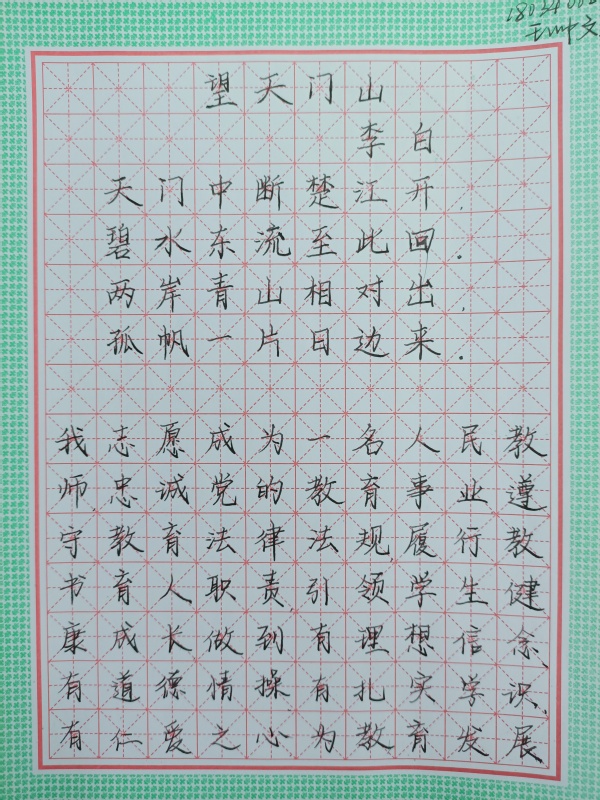 望天门山
李白
天门中断楚江开,
碧水东流至此回.
两岸青山相对出,
孤帆一片日边来.
我志愿成为一名人民教
师,忠诚党的教育事业遵
守教育法律法规,履行教
书育人职责,引领学生健
康成长做到有理想信念、
有道德情操、有扎实学识、
有仁爱之心为教育发展